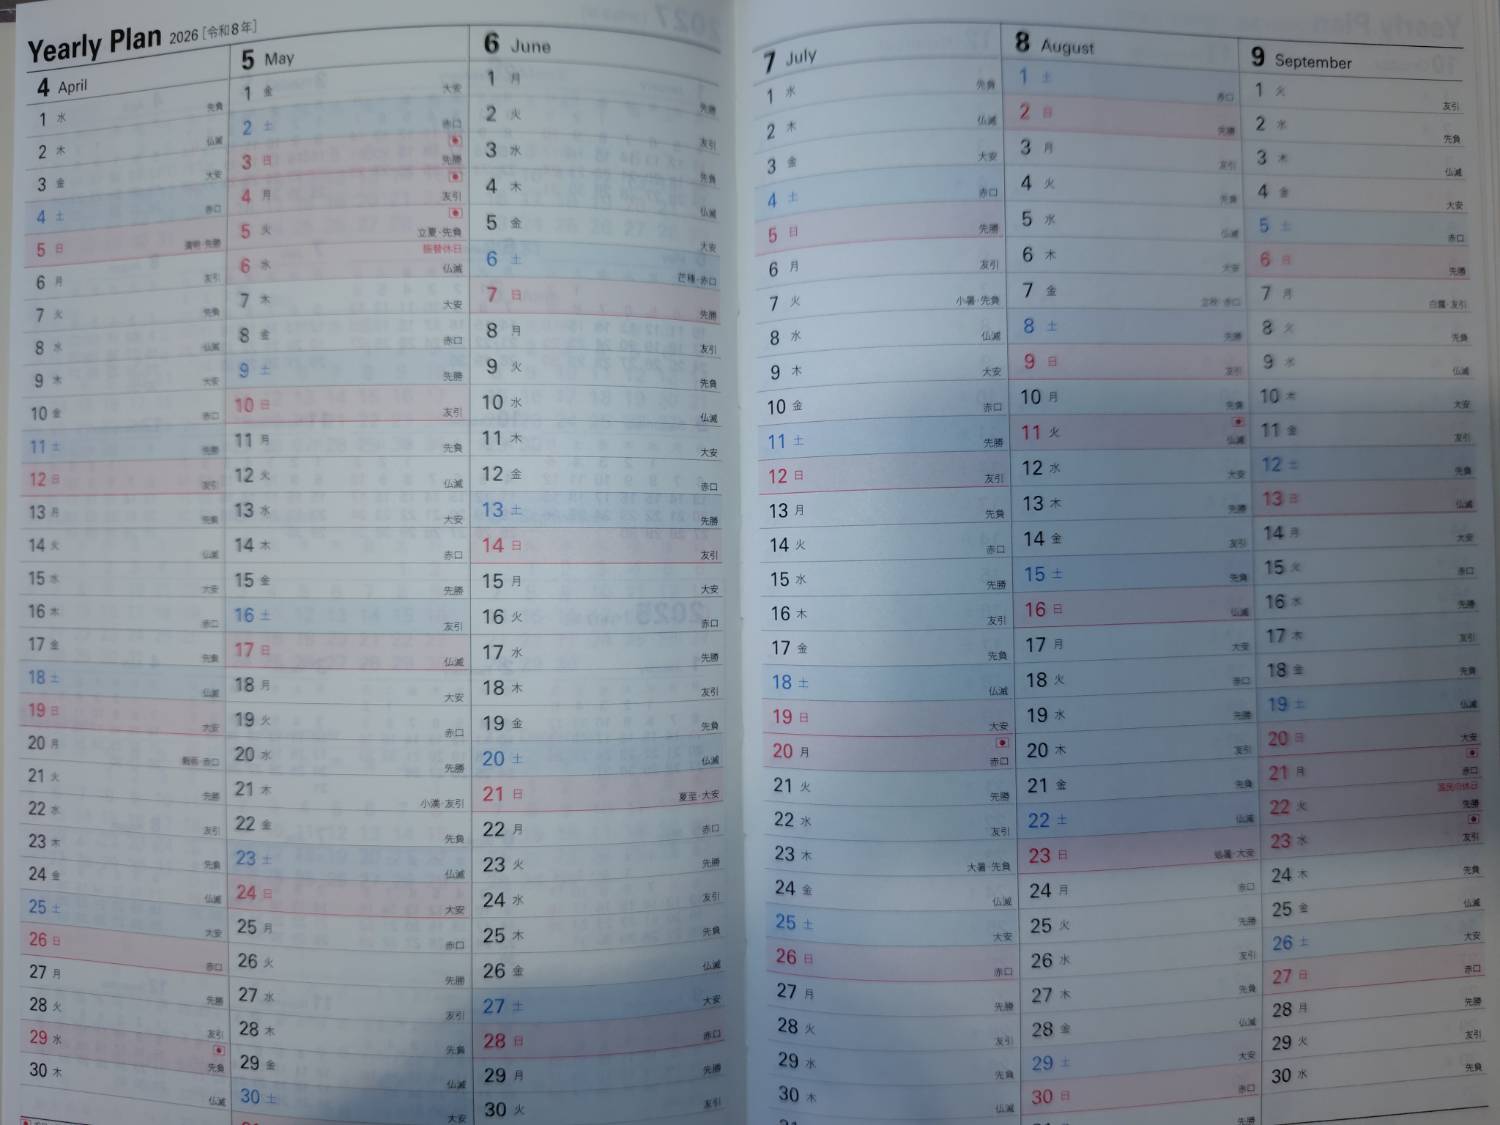 Yearly Plan 2026 [令和8年]
4 April
1 水 先負
2 木 仏滅
3 金 大安
4 土 赤口
5 日 清明・先勝
6 月 友引
7 火 先負
8 水 仏滅
9 木 大安
10 金 赤口
11 土 先勝
12 日 友引
13 月 先負
14 火 仏滅
15 水 大安
16 木 赤口
17 金 先負
18 土 仏滅
19 日 大安
20 月 穀雨・赤口
21 火 先勝
22 水 友引
23 木 先負
24 金 仏滅
25 土 大安
26 日 赤口
27 月 先勝
28 火 友引
29 水 先負
30 木 仏滅
5 May
1 金 大安
2 土 赤口
3 日 先勝
4 月 友引
5 火 立夏・先負
振替休日
6 水 仏滅
7 木 大安
8 金 赤口
9 土 先勝
10 日 友引
11 月 先負
12 火 仏滅
13 水 大安
14 木 赤口
15 金 先勝
16 土 友引
17 日 仏滅
18 月 大安
19 火 赤口
20 水 先勝
21 木 小満・友引
22 金 先負
23 土 仏滅
24 日 大安
25 月 赤口
26 火 先勝
27 水 友引
28 木 先負
29 金 仏滅
30 土 大安
6 June
1 月 先勝
2 火 友引
3 水 先負
4 木 仏滅
5 金 大安
6 土 芒種・赤口
7 日 先勝
8 月 友引
9 火 先負
10 水 仏滅
11 木 大安
12 金 赤口
13 土 先勝
14 日 友引
15 月 大安
16 火 赤口
17 水 先勝
18 木 友引
19 金 先負
20 土 仏滅
21 日 夏至・大安
22 月 赤口
23 火 先勝
24 水 友引
25 木 先負
26 金 仏滅
27 土 大安
28 日 赤口
29 月 先勝
30 火 友引
7 July
1 水 先負
2 木 仏滅
3 金 大安
4 土 赤口
5 日 先勝
6 月 友引
7 火 小暑・先負
8 水 仏滅
9 木 大安
10 金 赤口
11 土 先勝
12 日 友引
13 月 先負
14 火 赤口
15 水 先勝
16 木 友引
17 金 先負
18 土 仏滅
19 日 大安
20 月 赤口
21 火 先勝
22 水 友引
23 木 大暑・先負
24 金 仏滅
25 土 大安
26 日 赤口
27 月 先勝
28 火 友引
29 水 先負
30 木 仏滅
8 August
1 土 赤口
2 日 先勝
3 月 友引
4 火 先負
5 水 仏滅
6 木 大安
7 金 立秋・赤口
8 土 先勝
9 日 友引
10 月 先負
11 火 仏滅
12 水 大安
13 木 先勝
14 金 友引
15 土 先負
16 日 仏滅
17 月 大安
18 火 赤口
19 水 先勝
20 木 友引
21 金 先負
22 土 仏滅
23 日 処暑・大安
24 月 赤口
25 火 先勝
26 水 友引
27 木 先負
28 金 仏滅
29 土 大安
30 日 赤口
先勝
9 September
1 火 友引
2 水 先負
3 木 仏滅
4 金 大安
5 土 赤口
6 日 先勝
7 月 白露・友引
8 火 先負
9 水 仏滅
10 木 大安
11 金 友引
12 土 先負
13 日 仏滅
14 月 大安
15 火 赤口
16 水 先勝
17 木 友引
18 金 先負
19 土 仏滅
20 日 大安
21 月 赤口
国民の休日
22 火 先勝
23 水 友引
24 木 先負
25 金 仏滅
26 土 大安
27 日 赤口
28 月 先勝
29 火 友引
30 水 先負